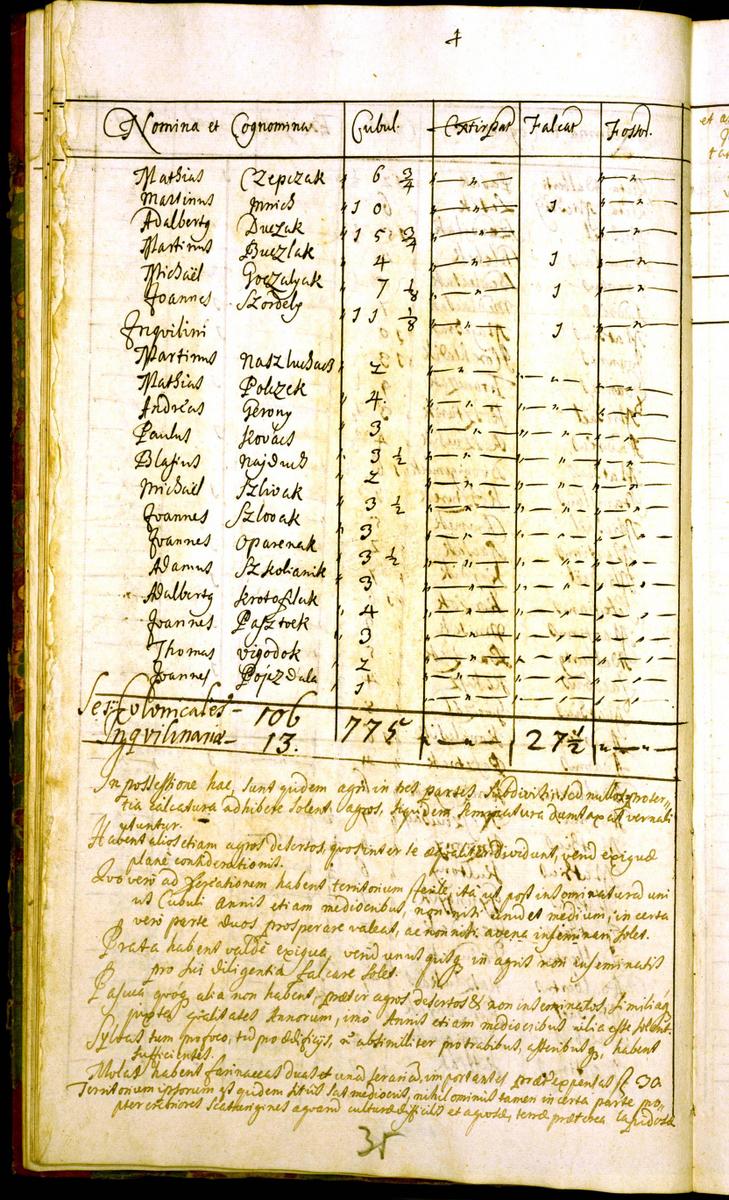 4
Nomina et Cognomina Cubul. Extirpat Falcat Fossor.
Mathias Czepczak " 6 3/4 " — " — " — " —
Martinus Mnich " 1 0 " — " — 1 " — " —
Adalbertg Duczak " 1 5 3/4 " — " — " — " —
Martinus Buczlak " 4 " — " — 1 " — " —
Michaël Goczalyak " 7 1/8 " — " — 1 " — " —
Joannes Szordely " 1 1 1/8 " — " — 1 " — " —
Inqvilini
Martinus Naszluchacs " 2 " — " — " — " —
Mathias Polczek " 4 " — " — " — " —
Andreas Gerony " 3 " — " — " — " —
Paulus Kovacs " 3 1/2 " — " — " — " —
Blasius Najduch " 2 " — " — " — " —
Michaël Szlivak " 3 1/2 " — " — " — " —
Joannes Szlovak " 3 " — " — " — " —
Joannes Oparenak " 3 1/2 " — " — " — " —
Adamus Szkolianik " 3 " — " — " — " —
Adalbertg Krotosluk " 4 " — " — " — " —
Joannes Pasztoek " 3 " — " — " — " —
Thomas Vigodok " 2 " — " — " — " —
Joannes Pojezdala " 1 " — " — " — " —
Ses. Colonicales — 106
Inqvilinariæ — 13. 775 " — " — 27 1/2 " — " —
In possessione hac, sunt quidem agri in tres partes subdivisi, sed nullos pro ter-
tia calcatura adhibere solent agros, siquidem seminatura dumtaxat vernali
utuntur.
Habent alios etiam agros desertos, quos inter se æqualiter dividunt, verùm exiguæ
planè considerationis.
Quo verò ad procreationem habent territorium sterile, ita ut post inseminaturam uni
us Cubuli annis etiam mediocribus, non nisi unum et medium, in certa
verò parte duos prosperare valeat, ac non nisi avena inseminari solet.
Prata habent valdè exigua, verùm unusquisq in agris non inseminatis
pro sui diligentia falcare solet.
Pascua quoq alia non habent, præter agros desertos & non inseminatos, similiaq
juxta qualitates Annorum, imò Annis etiam mediocribus vilia esse solent.
Sylvas tum pro foco, tum pro ædificijs, absimiliter pro trabibus, asseribusq, habent
sufficientes.
Molas habent farinaceas duas et unam serariam, importantes præter expensas f 30.
Territorium ipsorum est quidem situs sat mediocris, nihilominus tamen in certa parte pro-
pter crebriores scaturigines aquarum culturæ difficilis et aquosæ, terræ præterea lapidosæ
35